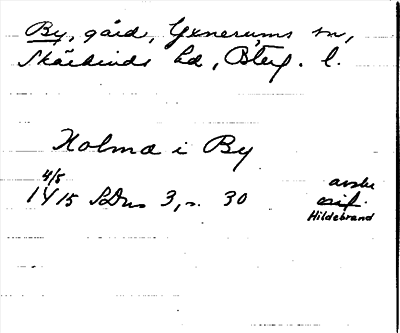 By, gård, Yxnerums sn,
Skärkinds hd, Ög. l.
Holma i By
4/5
1415 SDns 3, s. 30
avskr.
orig.
Hildebrand